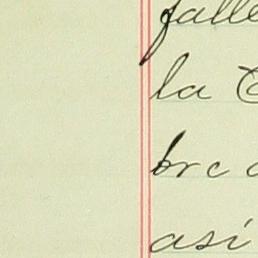 falle
la
bre
así